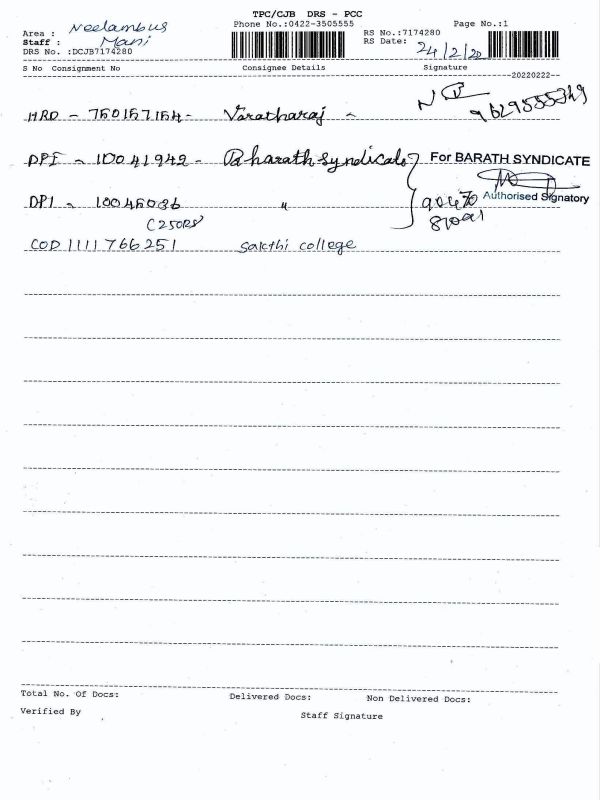 TPC/CJB DRS - PCC
Phone No.:0422-3505555
Page No.:1
Area : Neelambus
Staff : Mani
DRS No. :DCJB7174280
RS No.:7174280
RS Date: 24/2/20
S No Consignment No Consignee Details Signature
--20220222--
HRD - 760157154 - Varatharaj -
9629555349
DPI - 10041942 - Bharath Syndicate
For BARATH SYNDICATE
Authorised Signatory
DPI - 10046036 "
C250RS
COD 1111766251 Sakthi college
Total No. Of Docs: Delivered Docs: Non Delivered Docs:
Verified By Staff Signature